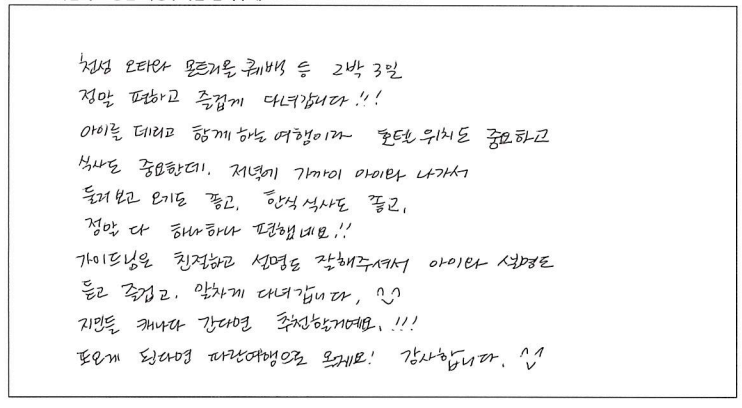 천섬 오타와 몬트리올 퀘백 등 2박 3일
정말 편하고 즐겁게 다녀갑니다!!!
아이를 데리고 함께하는 여행이라 호텔 위치도 중요하고
식사도 중요한데. 저녁에 가까이 아이와 나가서
둘러보고 오기도 좋고, 한식 식사도 좋고,
정말 다 하나하나 편했네요!!
가이드님은 친절하고 설명도 잘해주셔서 아이와 설명도
듣고 즐겁고. 알차게 다녀갑니다, ^^
지인들 캐나다 간다면 추천할거예요.!!!
또오게 된다면 파란여행으로 올게요! 감사합니다. ^^